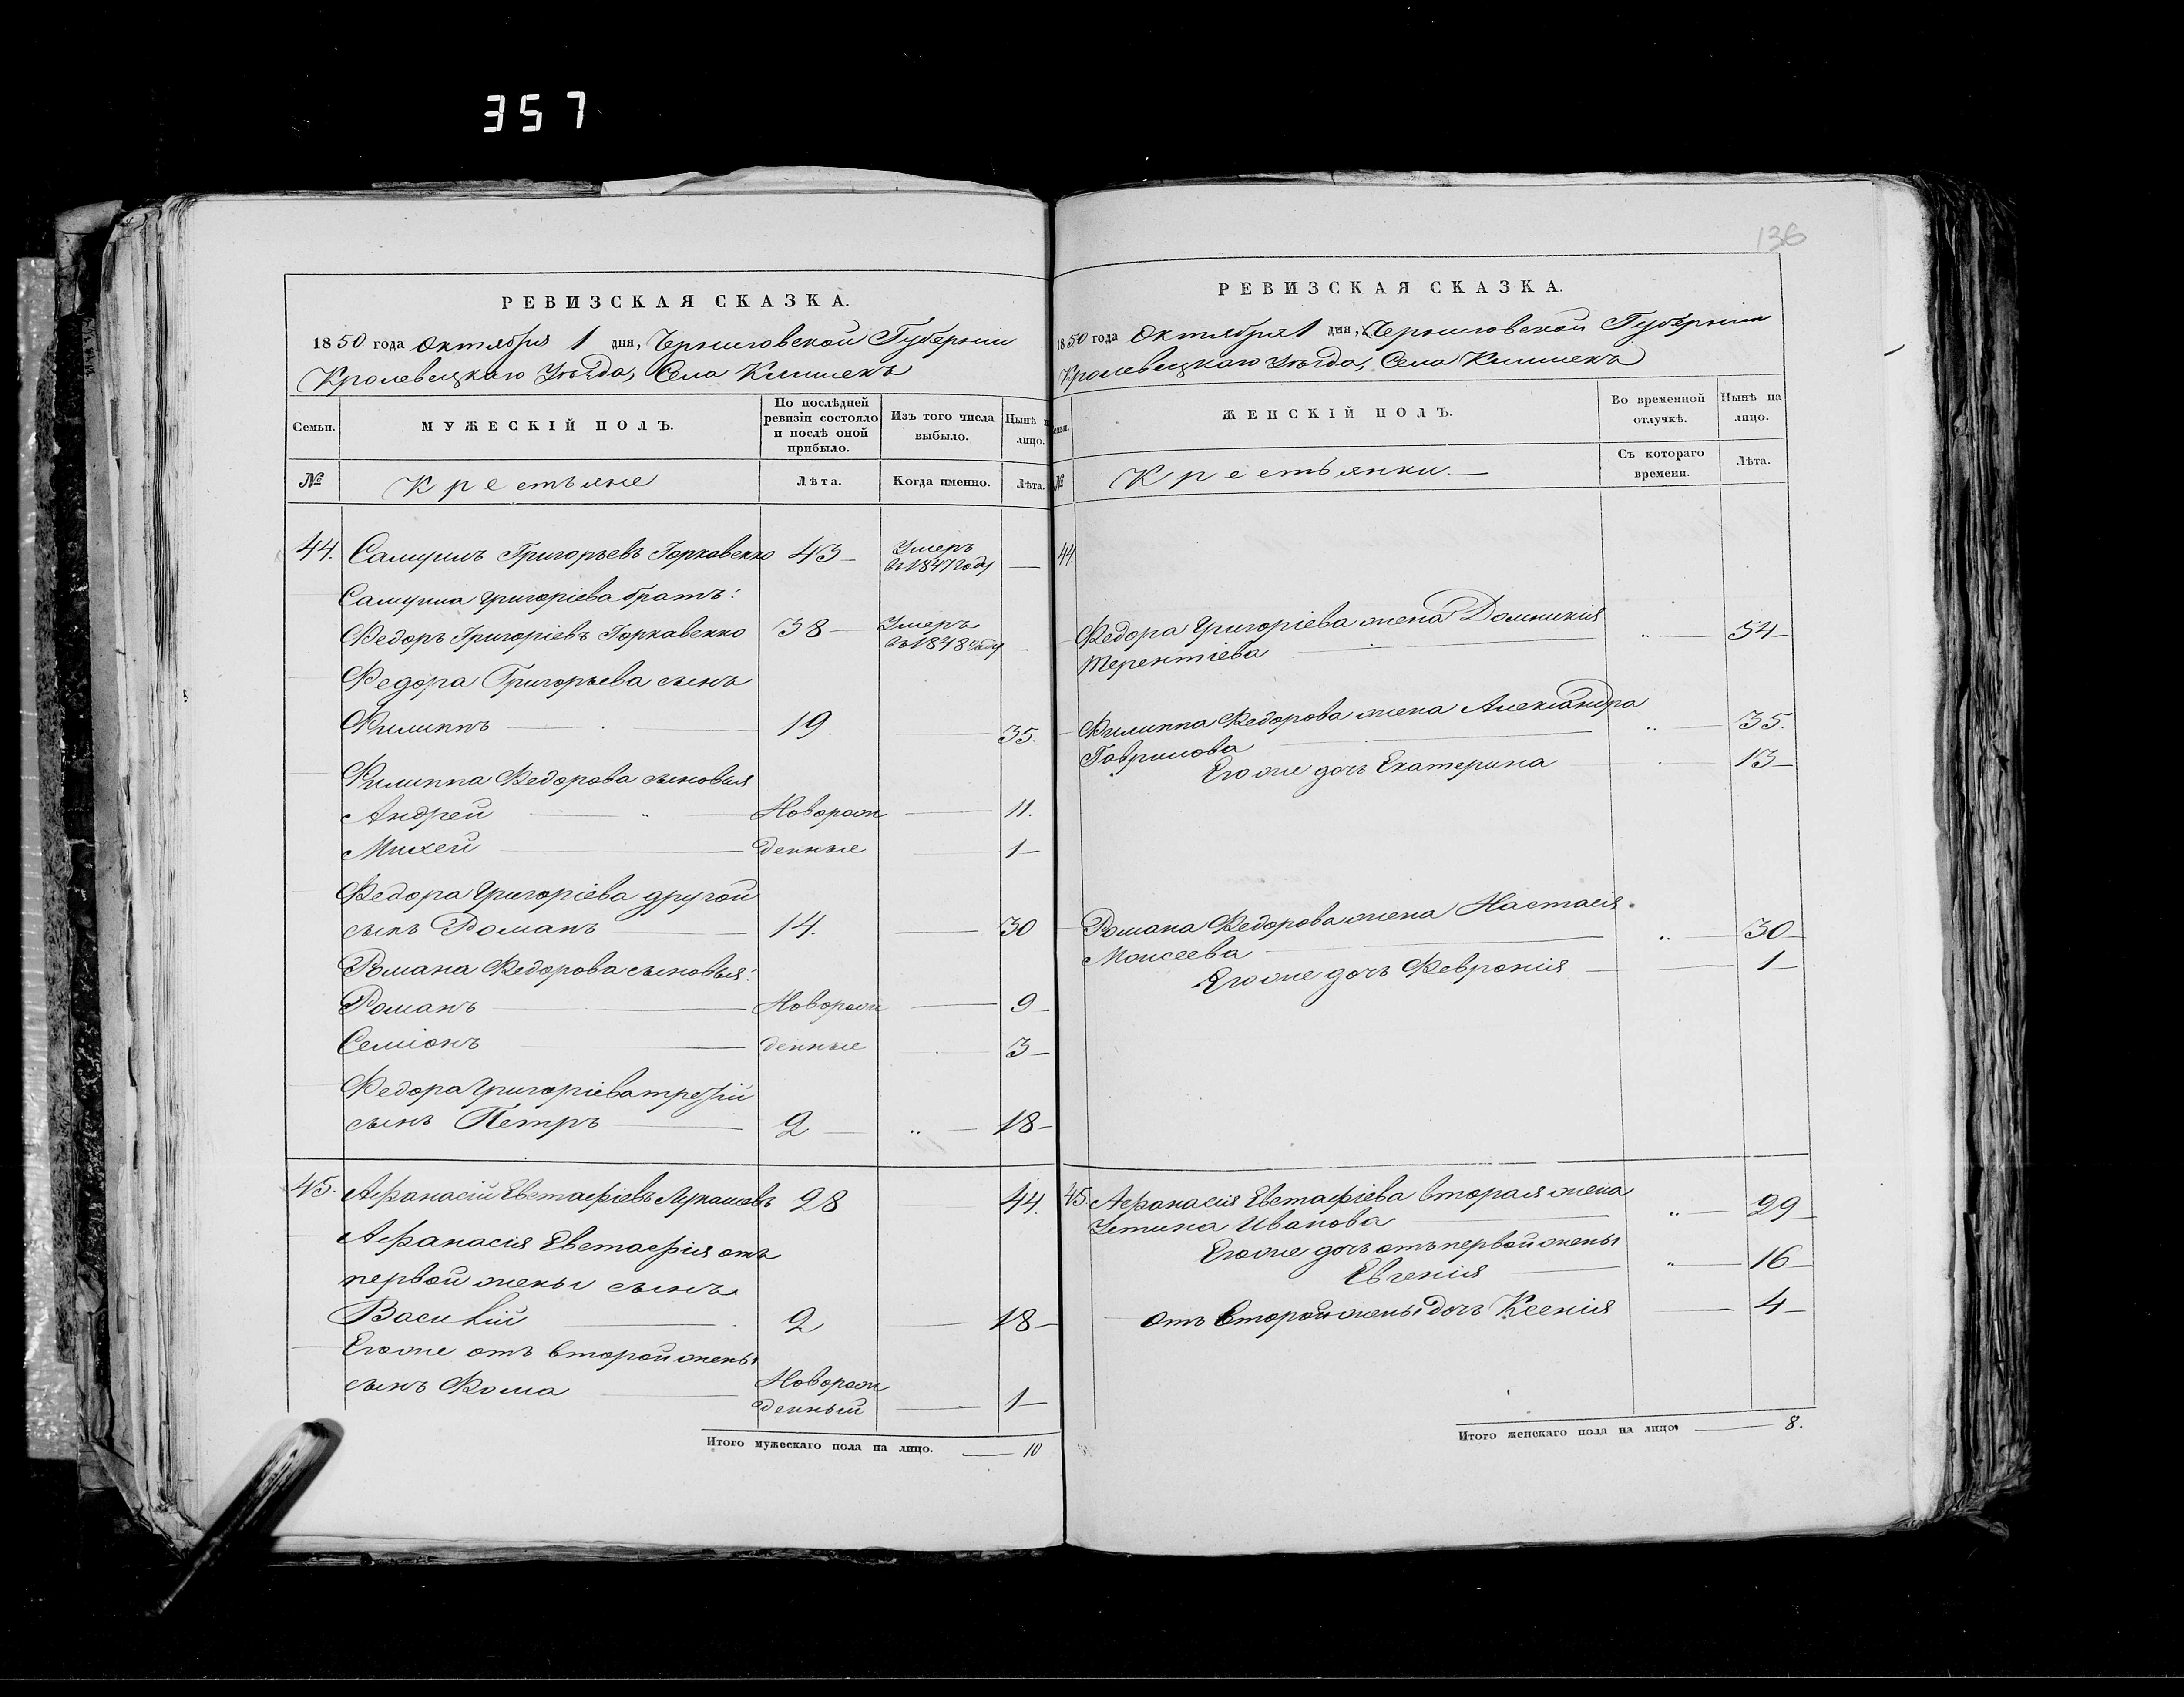 357
136
РЕВИЗСКАЯ СКАЗКА.
1850 года Октября 1 дня, Черниговской Губерніи
Кролевецкаго Уѣзда, Села Клишекъ
Семьи.
МУЖЕСКІЙ ПОЛЪ.
По послѣдней ревизіи состояло и послѣ оной прибыло.
Изъ того числа выбыло.
Нынѣ н лицо.
№
Крестьяне
Лѣта.
Когда именно.
Лѣта.
44. Самуилъ Григорьевъ Горкавенко 43 Умеръ въ 1847 году
Самуила Григоріева братъ:
Федоръ Григоріевъ Горкавенко 38 Умеръ въ 1848 году
Федора Григорьева сынъ
Филиппъ 19. 35.
Филиппа Федорова сыновья
Андрей Новорож 11.
Михей денные 1
Федора Григоріева другой
сынъ Романъ 14. 30
Романа Федорова сыновья:
Романъ Новорож 9
Семіонъ денные 3
Федора Григоріева третій
сынъ Петръ 2 18
45. Афанасій Евстафіевъ Лукашовъ 28 44.
Афанасія Евстафія отъ
первой жены сынъ
Василій 2 18
Егоже отъ второй жены
сынъ Фома Новорож
денный 1
Итого мужескаго пола на лицо. 10
РЕВИЗСКАЯ СКАЗКА.
1850 года Октября 1 дня, Черниговской Губерніи
Кролевецкаго Уѣзда, Села Клишекъ
емьи.
ЖЕНСКІЙ ПОЛЪ.
Во временной отлучкѣ.
Нынѣ на лицо.
№
Крестьянки.
Съ котораго времени.
Лѣта.
44.
Федора Григоріева жена Домникія
Терентіева 54
Филиппа Федорова жена Александра
Гаврилова 35.
Егоже дочь Екатерина 13
Романа Федорова жена Настасія
Моисеева 30
Егоже дочь Февронія 1
45 Афанасія Евстафіева вторая жена
Устина Иванова 29
Егоже дочь отъ первой жены
Евгенія 16
отъ второй жены дочь Ксенія 4
Итого женскаго пола на лицо. 8.